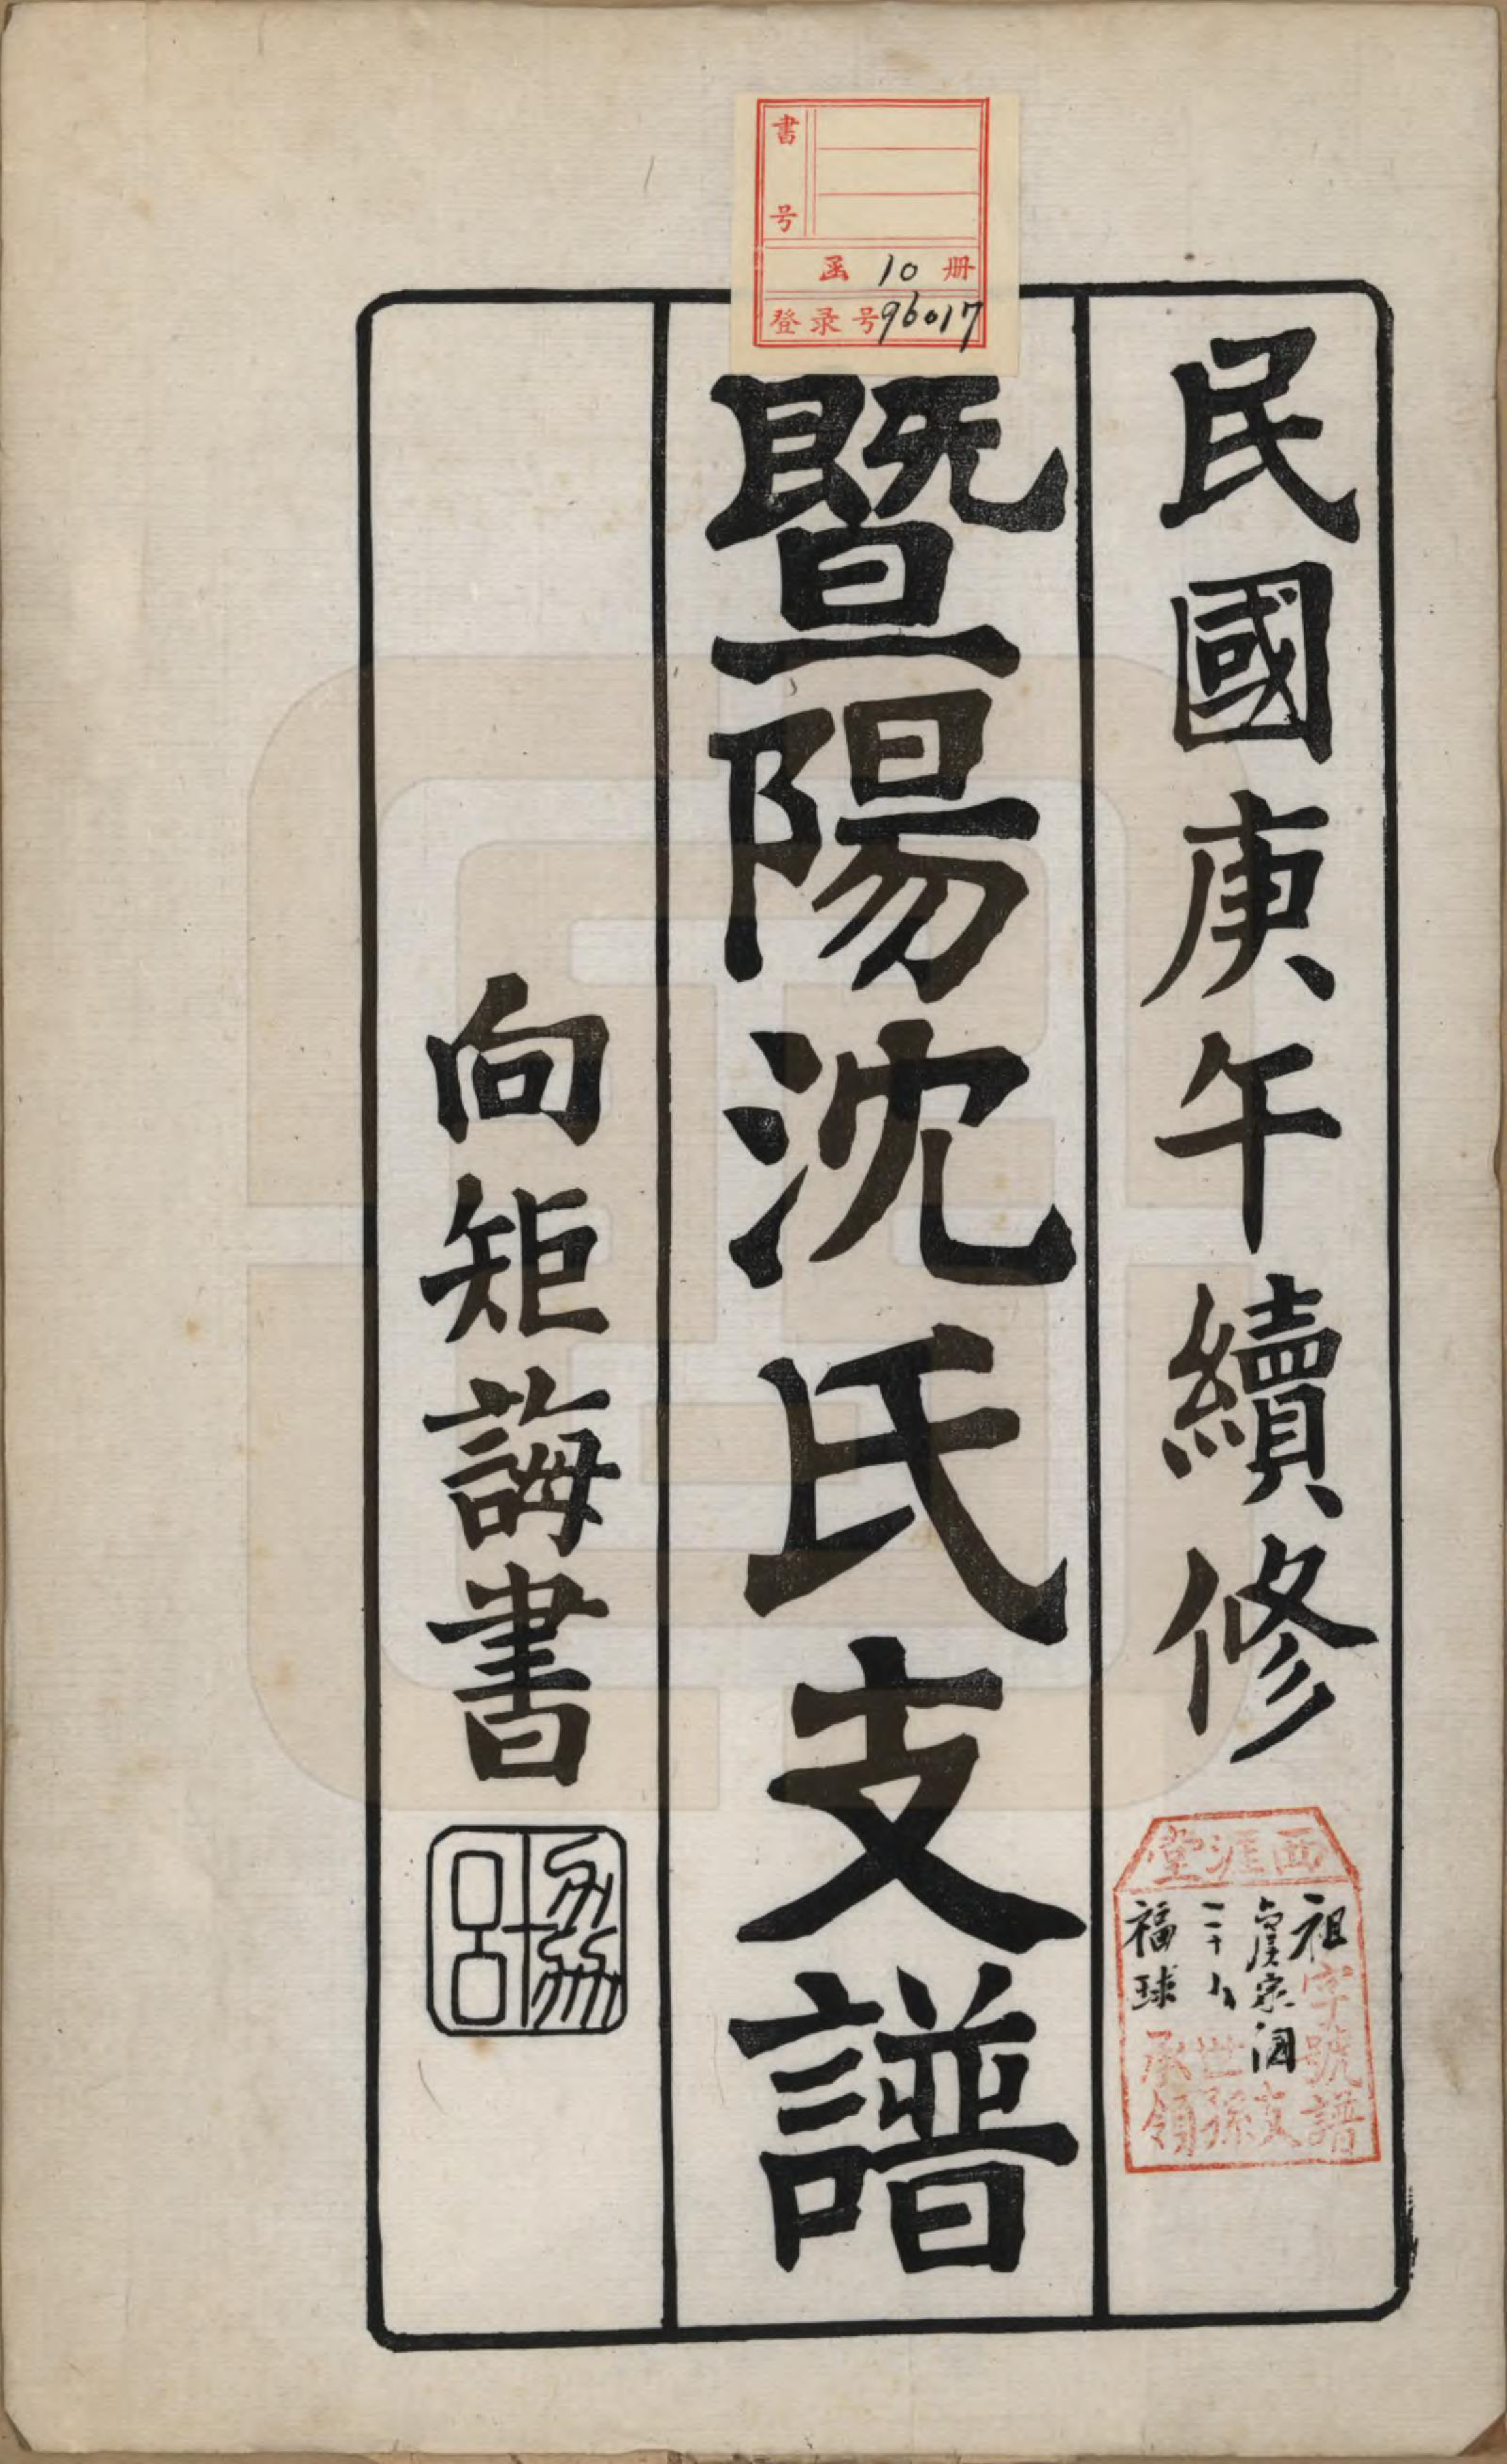 書号
函 10 册
登录号 96017
民國庚午續修
暨陽沈氏支譜
向矩誨書
協
西涯堂
祖字號譜
宗 支
二十八世孫
福球承領